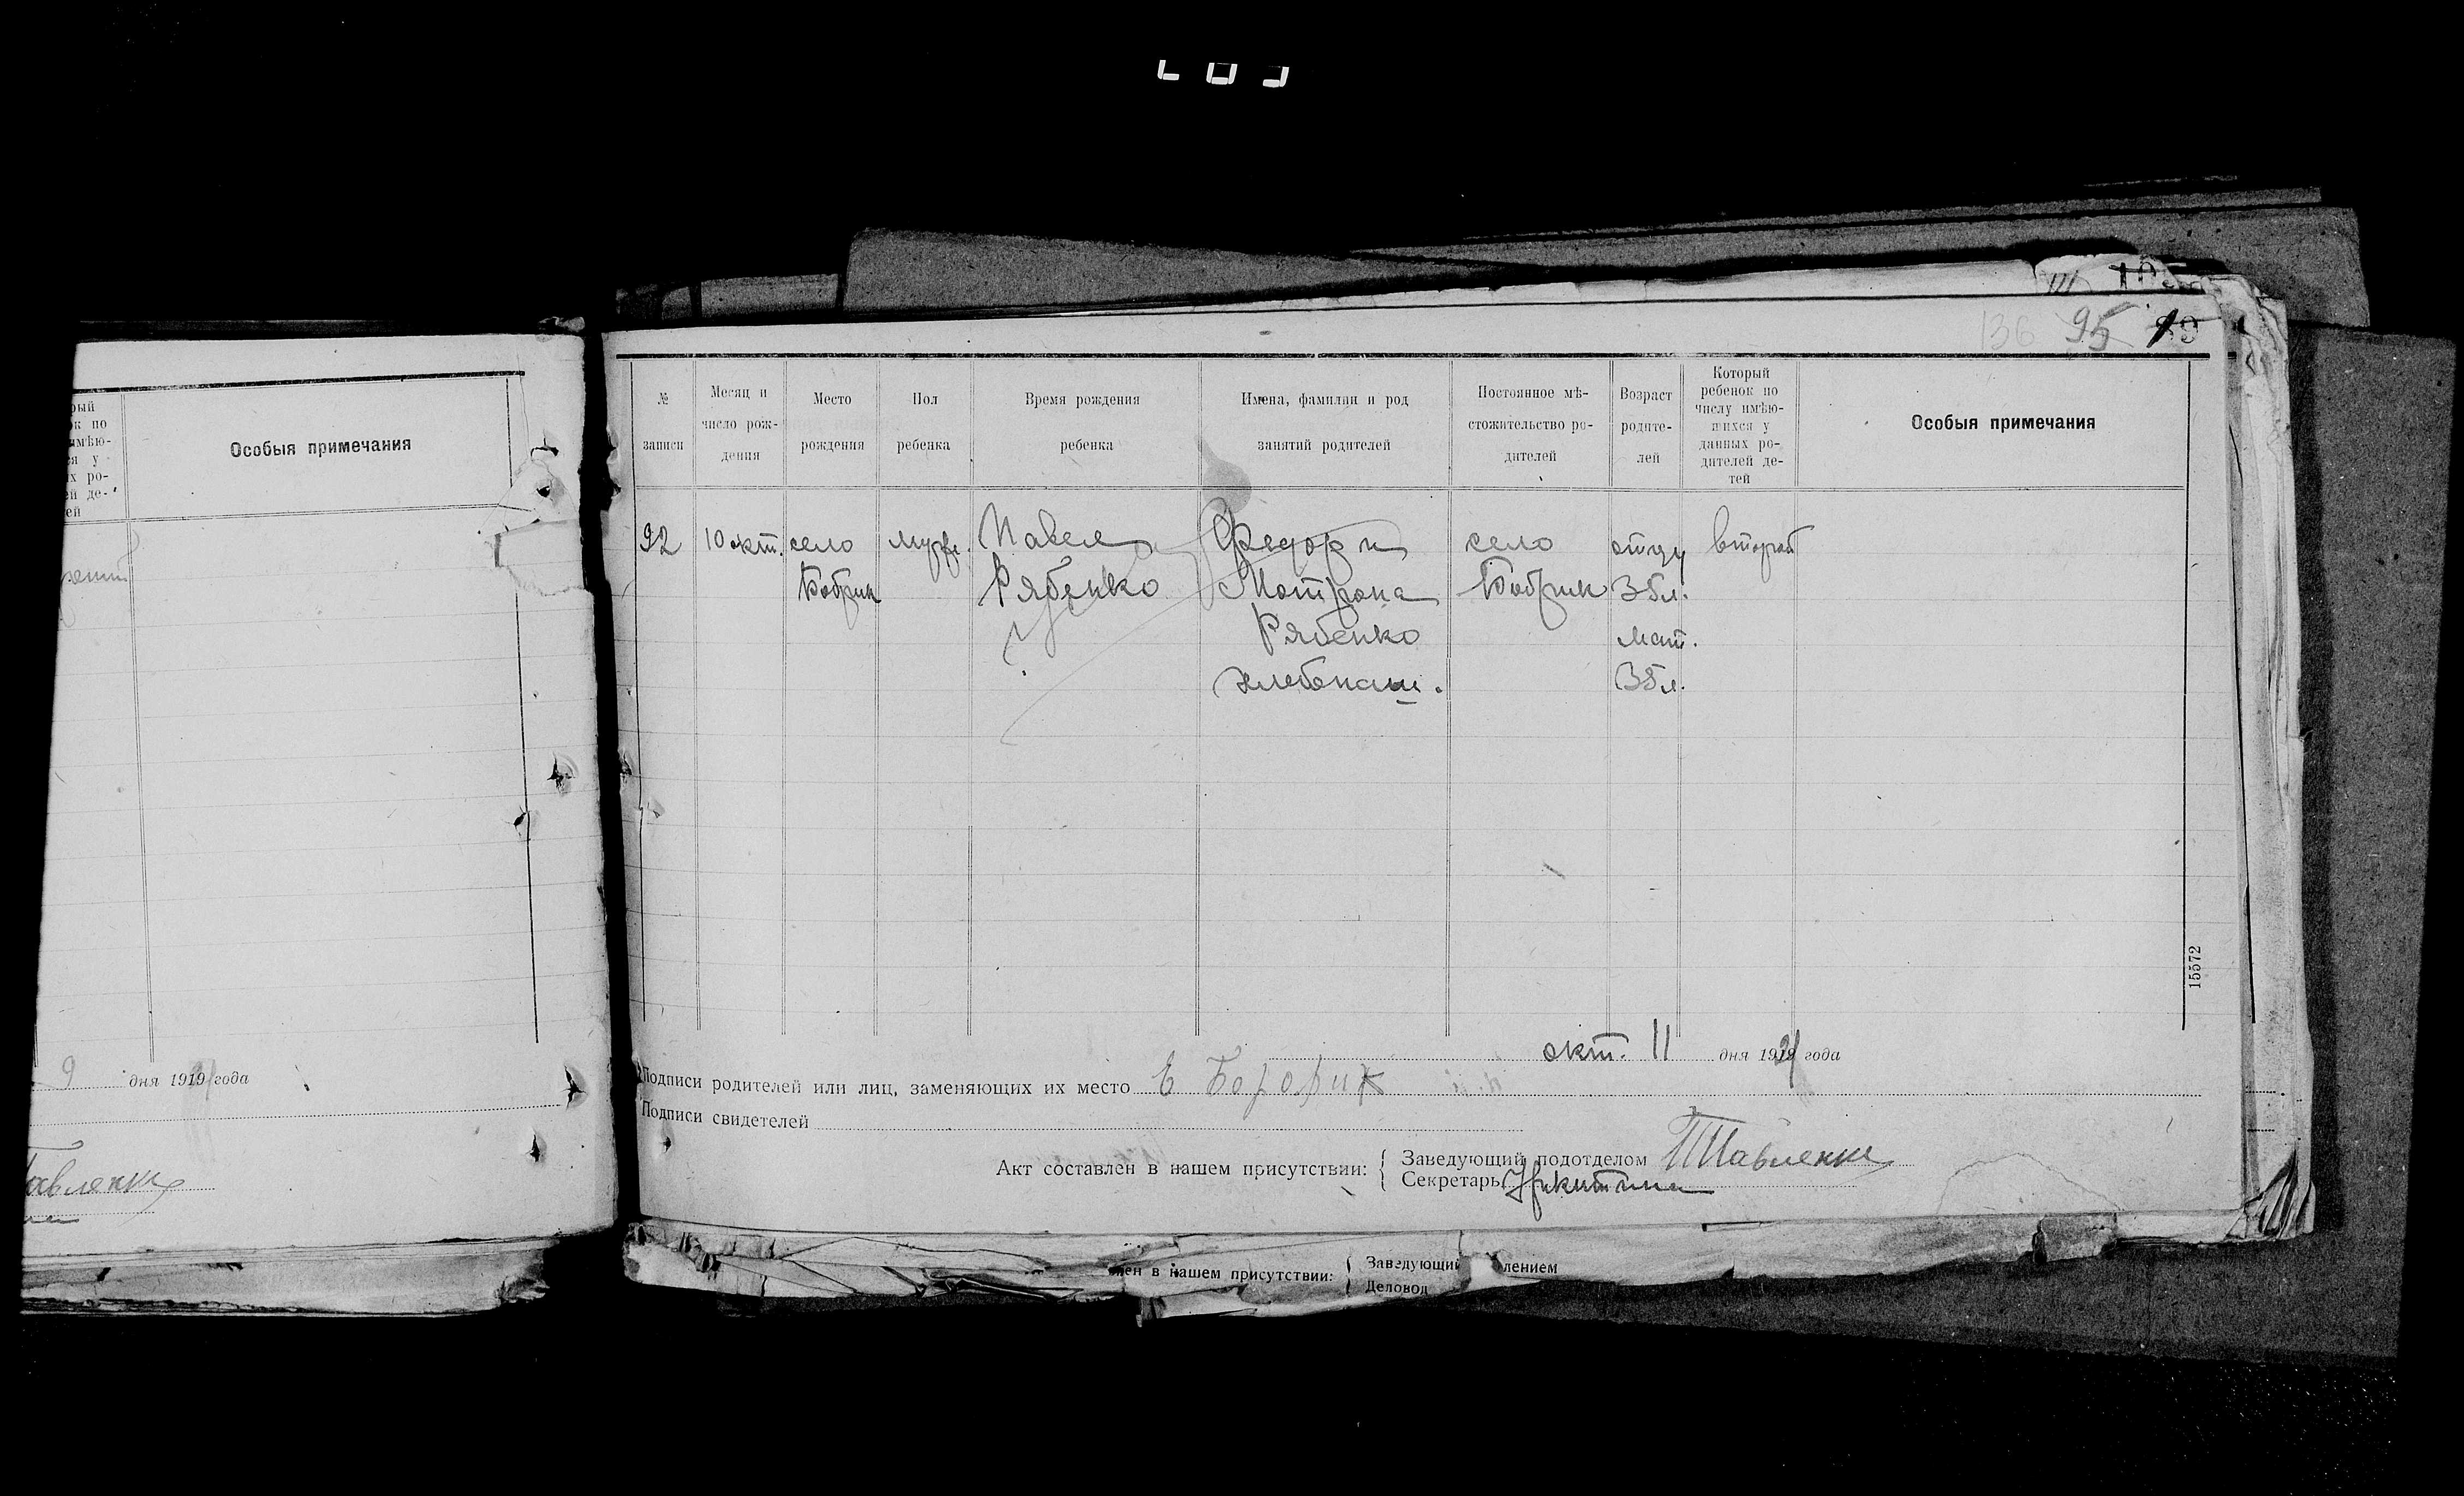 рый
ок по
имѣю-
ся у
х ро-
ей де-
ей
Особыя примечания
9 дня 1919 года
авленки
136 95
№
записи
Месяц и
число рож-
дения
Место
рождения
Пол
ребенка
Время рождения
ребенка
Имена, фамилии и род
занятий родителей
Постоянное мѣ-
стожительство ро-
дителей
Возраст
родите-
лей
Который
ребенок по
числу имѣю-
щихся у
данных ро-
дителей де-
тей
Особыя примечания
92
10 окт.
село
Бобрик
муж.
Павел
Рябенко
?
Федор и
Мотрона
Рябенко
хлебопаш.
село
Бобрик
отцу
35л.
мат.
35л.
второй
15572
окт. 11 дня 1921 года
Подписи родителей или лиц, заменяющих их место Е
Подписи свидетелей
Акт составлен в нашем присутствии:
Заведующий подотделом
Секретарь Никитина
ен в нашем присутствии:
Заведующий лением
Деловод